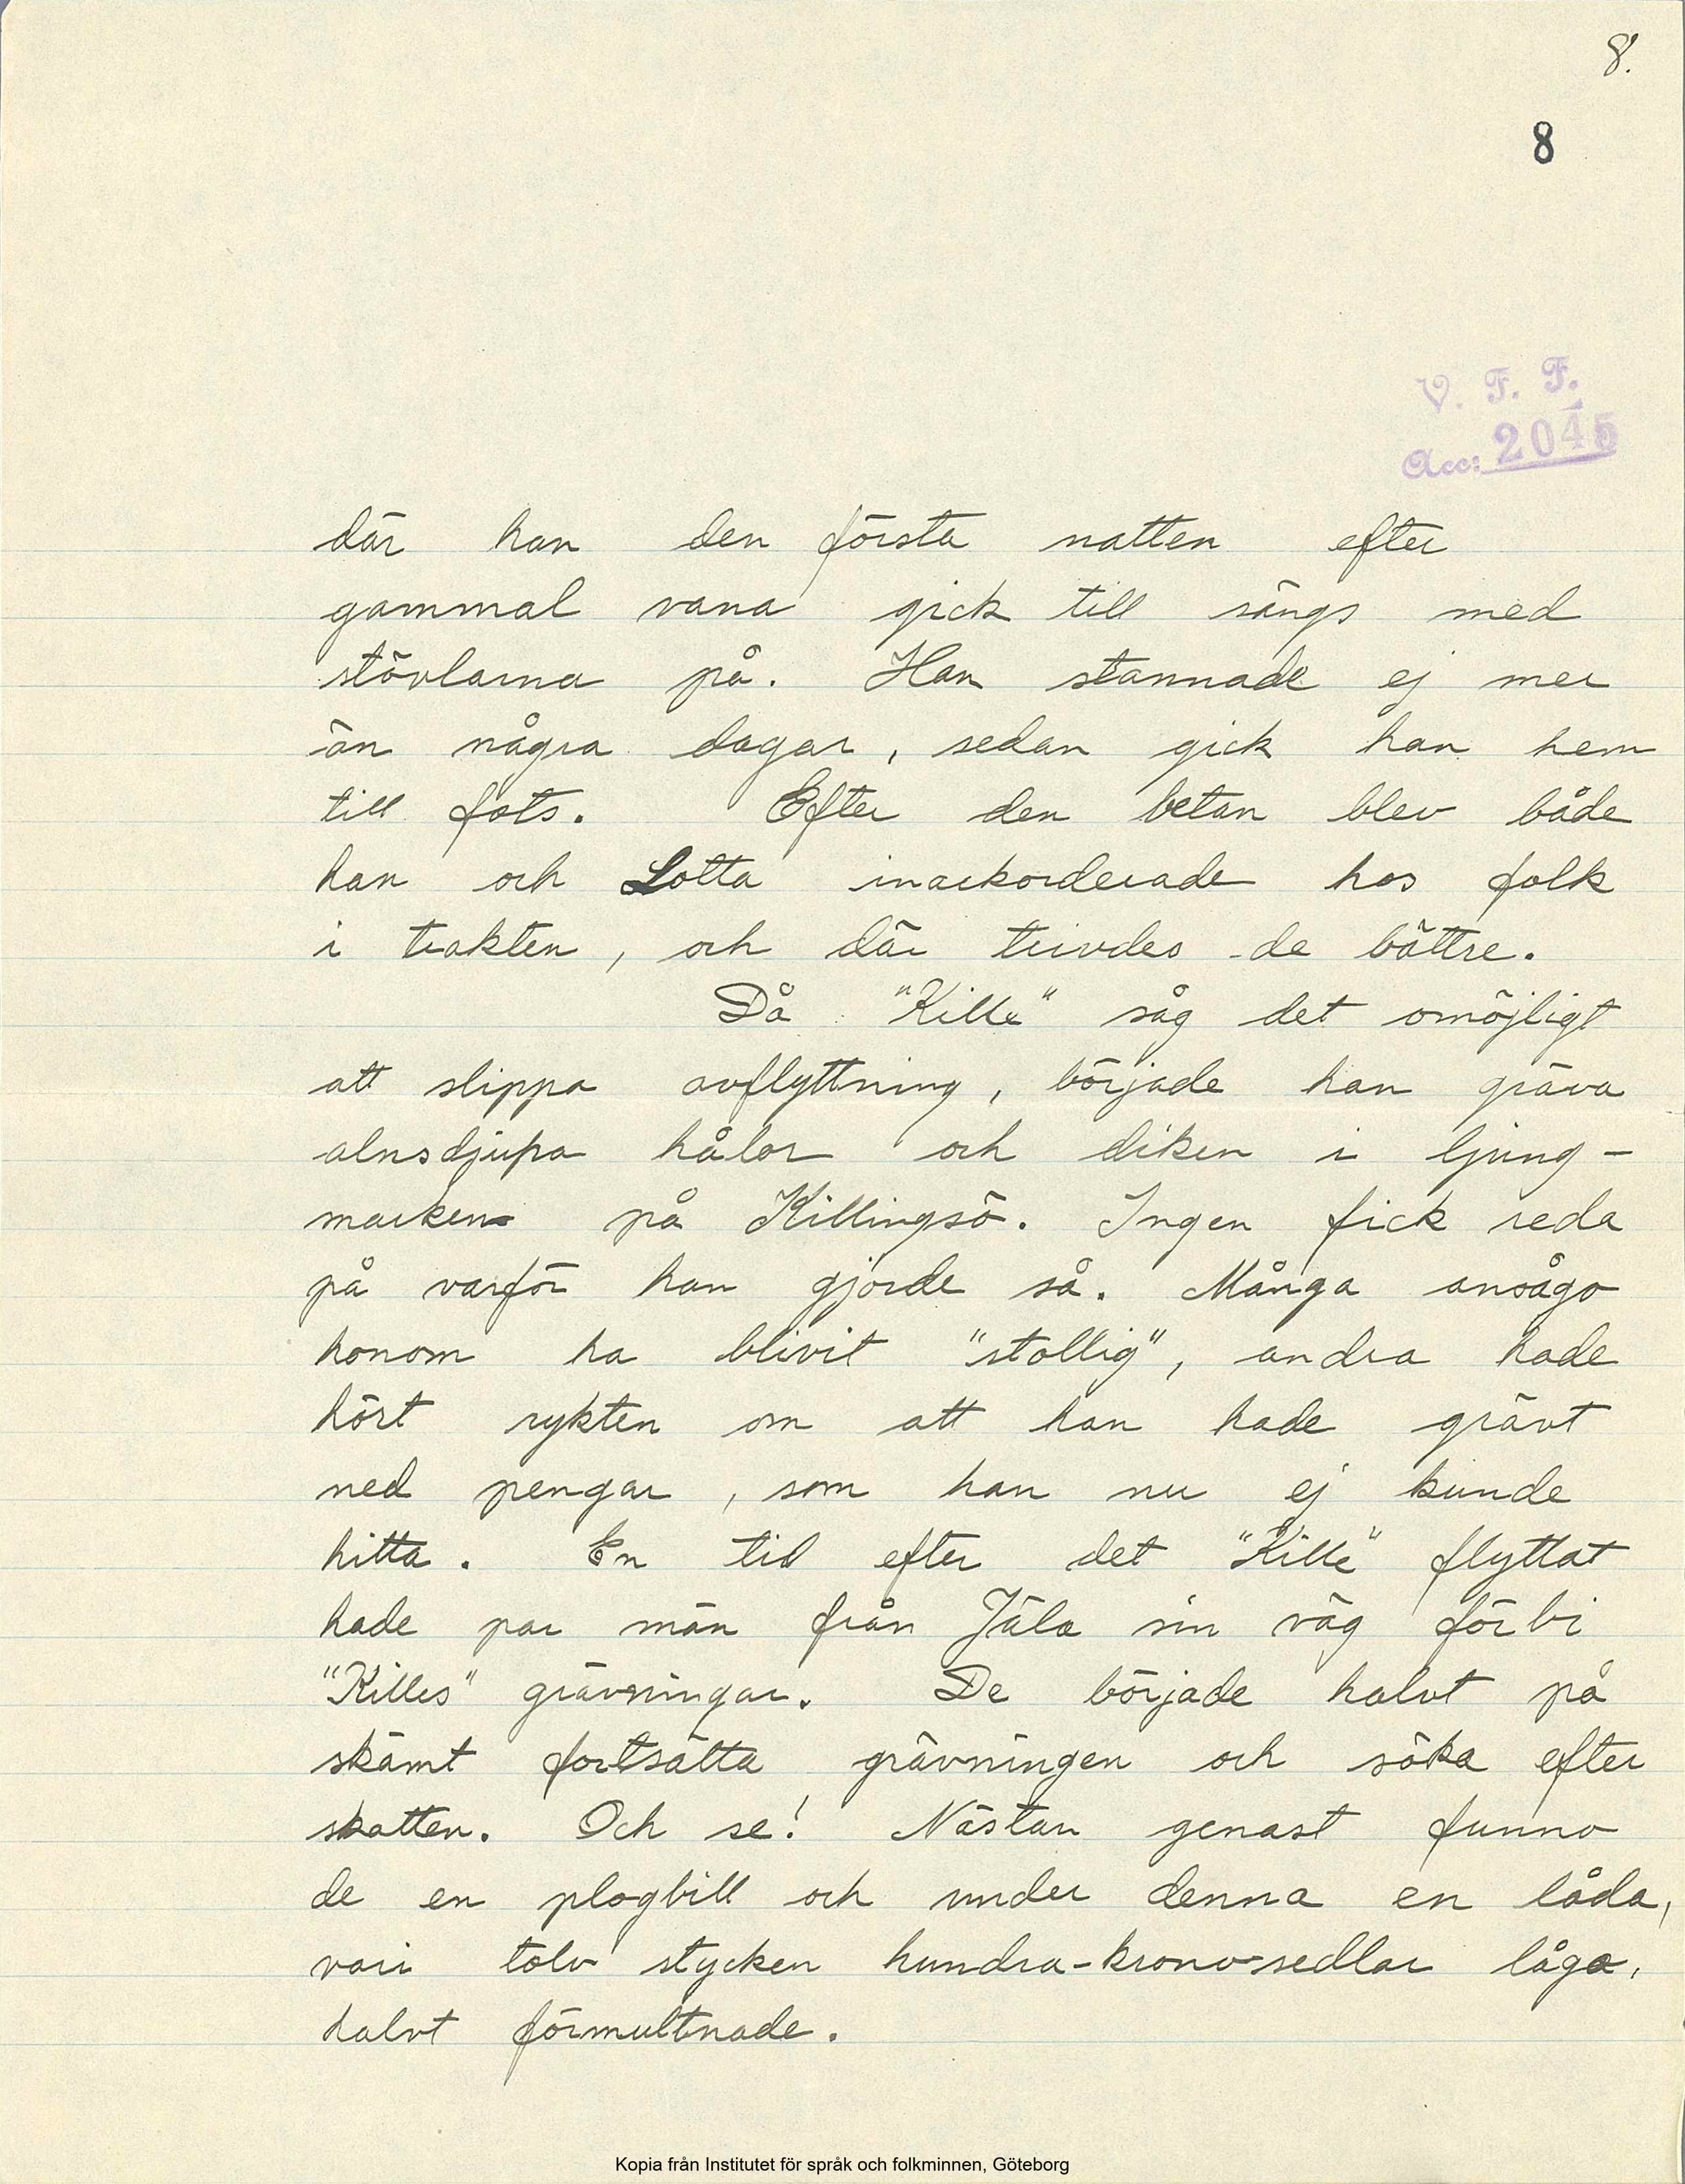 8.
8
V. F. F.
Acc: 2045
där han den första natten efter
gammal vana gick till sängs med
stövlarna på. Han stannade ej mer
än några dagar, sedan gick han hem
till fots. Efter den betan blev både
han och Lotta inackorderade hos folk
i trakten, och där trivdes de bättre.
Då "Kille" såg det omöjligt
att slippa avflyttning, började han gräva
alnsdjupa hålor och diken i ljung-
marken på Killingsö. Ingen fick reda
på varför han gjorde så. Många ansågo
honom ha blivit "stollig", andra hade
hört rykten om att han hade grävt
ned pengar, som han nu ej kunde
hitta. En tid efter det "Kille" flyttat
hade par män från Jäla sin väg förbi
"Killes" grävningar. De började halvt på
skämt fortsätta grävningen och söka efter
skatten. Och se! Nästan genast funno
de en plogbill och under denna en låda,
vari tolv stycken hundra-kronosedlar lågo,
halvt förmultnade.
Kopia från Institutet för språk och folkminnen, Göteborg